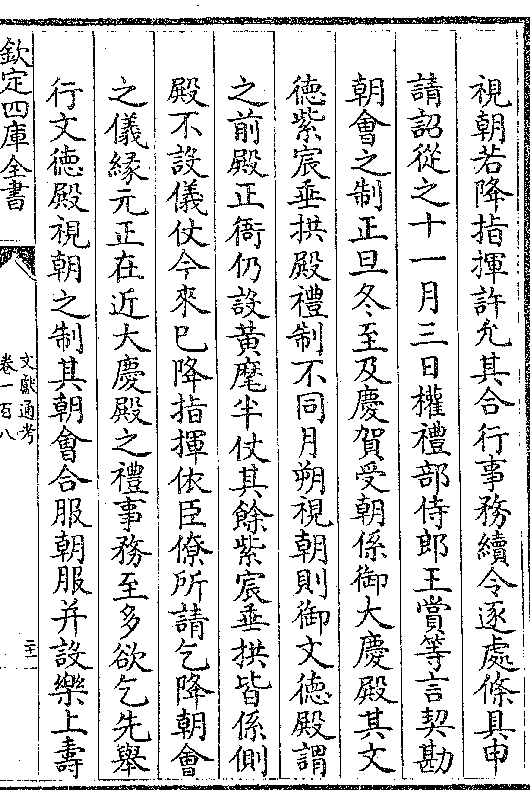 視朝若降指揮許允其合行事務續令逐處條具申
請詔從之十一月三日權禮部侍郎王賞等言契勘
朝會之制正旦冬至及慶賀受朝係御大慶殿其文
德紫宸垂拱殿禮制不同月朔視朝則御文德殿謂
之前殿正衙仍設黃麾半仗其餘紫宸垂拱皆係側
殿不設儀仗今來巳降指揮依臣僚所請乞降朝會
之儀緣元正在近大慶殿之禮事務至多欲乞先舉
行文德殿視朝之制其朝會合服朝服并設樂上壽
欽定四庫全書
文獻通考
卷一百八
二十一